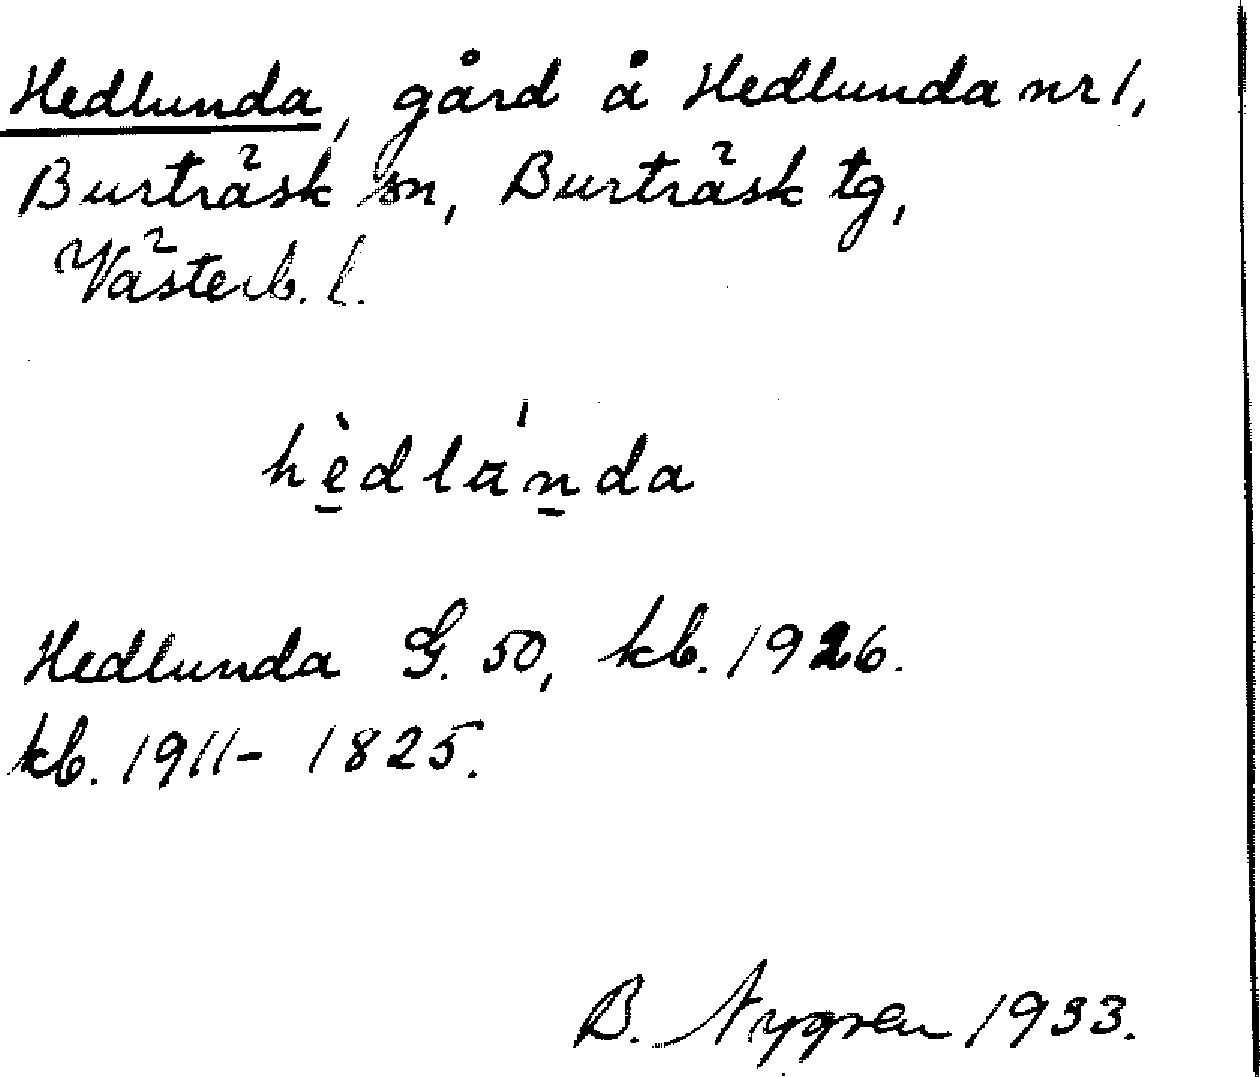 Hedlunda, gård å Hedlunda nr 1,
Burträsk sn, Burträsk tg,
Västerb. l.
hèdlánda
Hedlunda G. 50, kb. 1926.
kb. 1911- 1825.
B. Nygren 1933.